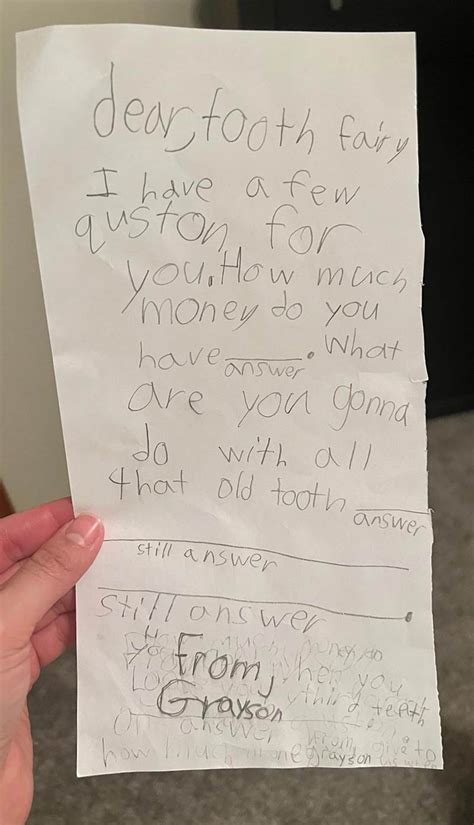 dear, tooth fairy
I have a few
quston for
you. How much
money do you
have ______. What
answer
are you gonna
do with all
that old tooth ______
answer
still answer
still answer
From,
Grayson
money do
when you
teeth
answer
From
give to
how much
grayson